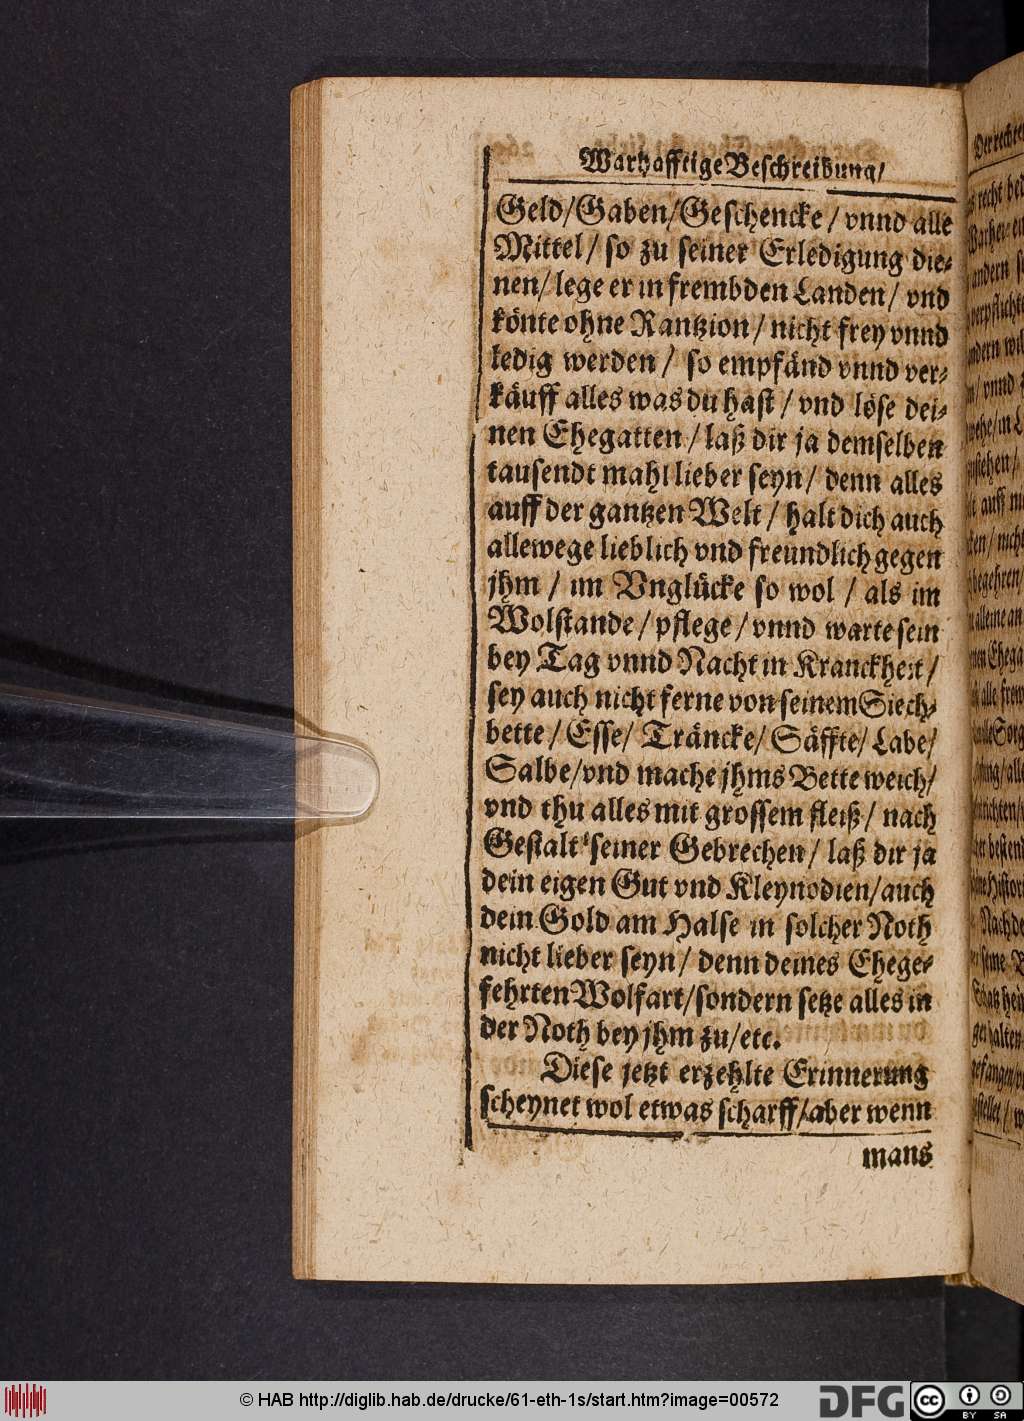 Warhafftige Beschreibung/
Geld/Gaben/Geschencke / vnnd alle
Mittel / so zu seiner Erledigung die-
nen/ lege er in frembden Landen / vnd
könte ohne Rantzion / nicht frey vnnd
ledig werden / so empfänd vnnd ver-
käuff alles was du hast / vnd löse dei-
nen Ehegatten / laß dir ja demselben
tausendt mahl lieber seyn / denn alles
auff der gantzen Welt / halt dich auch
allewege lieblich vnd freundlich gegen
jhm / im Vnglücke so wol / als im
Wolstande / pflege / vnnd warte sein
bey Tag vnnd Nacht in Kranckheit /
sey auch nicht ferne von seinem Siech-
bette / Esse/ Träncke/ Säffte/ Labe/
Salbe/vnd mache jhms Bette weich/
vnd thu alles mit grossem fleiß / nach
Gestalt seiner Gebrechen / laß dir ja
dein eigen Gut vnd Kleynodien/auch
dein Gold am Halse in solcher Noth
nicht lieber seyn / denn deines Ehege-
fehrten Wolfart/sondern setze alles in
der Noth bey jhm zu/etc.
Diese jetzt erzehlte Erinnerung
scheynet wol etwas scharff/aber wenn
mans
© HAB http://diglib.hab.de/drucke/61-eth-1s/start.htm?image=00572
DFG
cc BY SA